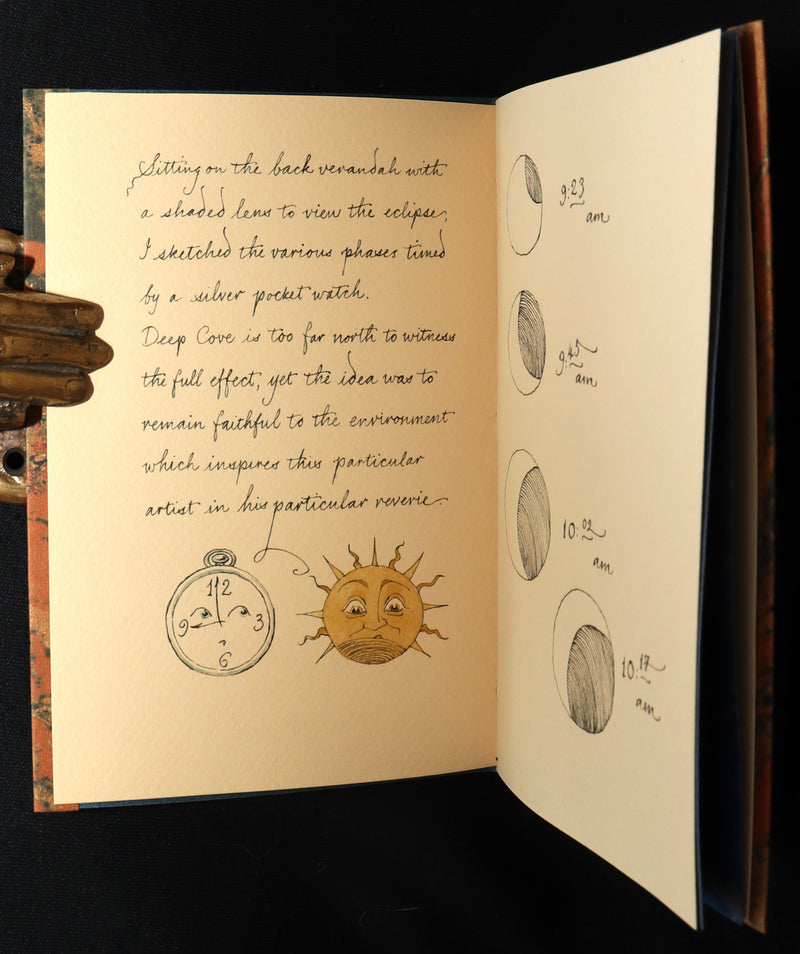 Sitting on the back verandah with
a shaded lens to view the eclipse,
I sketched the various phases timed
by a silver pocket watch.
Deep Cove is too far north to witness
the full effect, yet the idea was to
remain faithful to the environment
which inspires this particular
artist in his particular reverie.
12
9 3
6
9:23
am
9:45
am
10:02
am
10:17
am